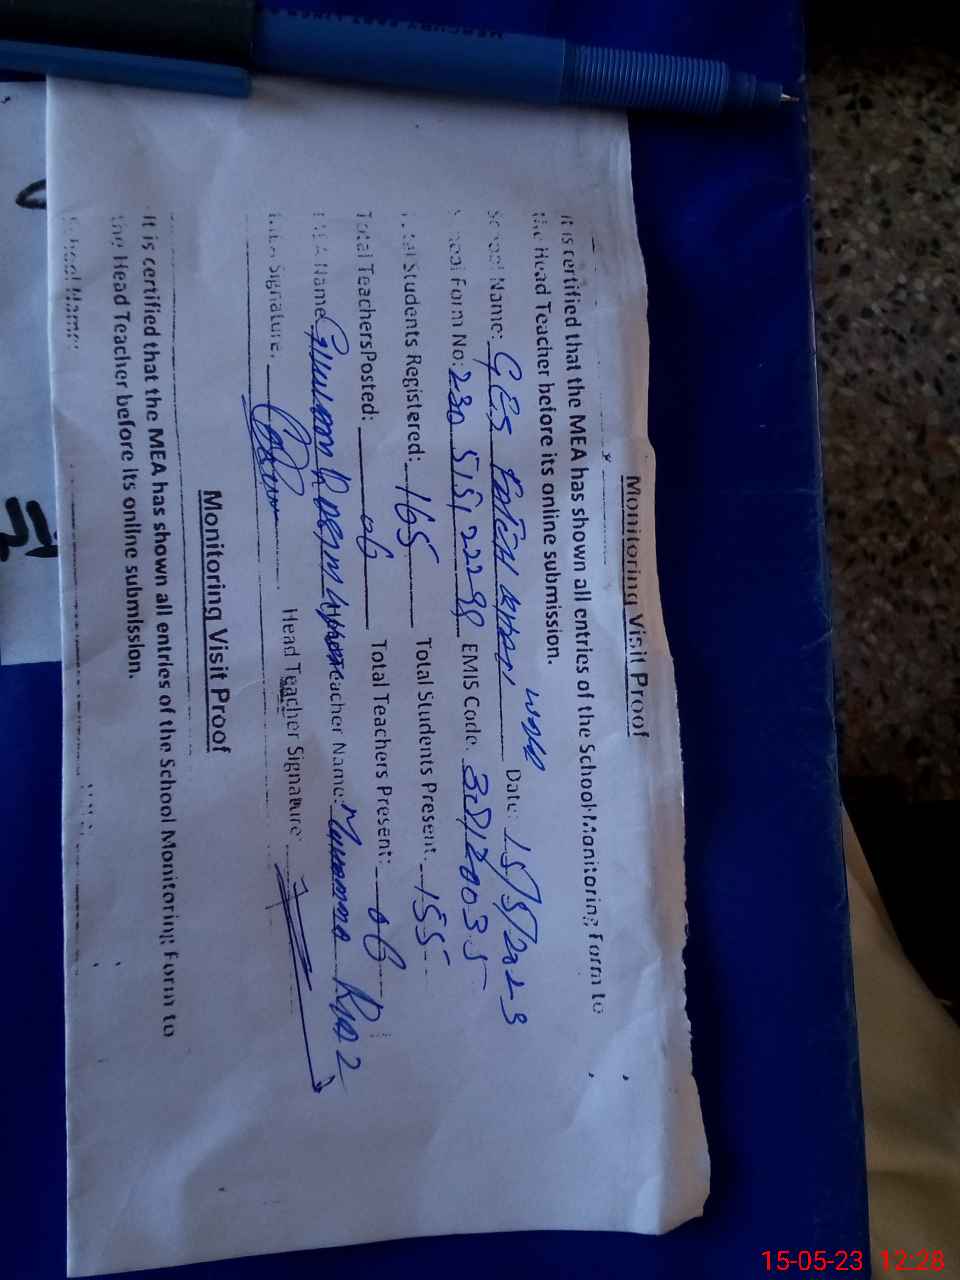 Monitoring Visit Proof
It is certified that the MEA has shown all entries of the School Monitoring Form to
the Head Teacher before its online submission.
School Name: GES Date: 15/5/2023
School Form No: 230 5151 2298 EMIS Code: 38120035
Total Students Registered: 165 Total Students Present: 155
Total Teachers Posted: 06 Total Teachers Present: 06
MEA Name Teacher Name:
MEA Signature: Head Teacher Signature:
Monitoring Visit Proof
It is certified that the MEA has shown all entries of the School Monitoring Form to
the Head Teacher before its online submission.
School Name:
15-05-23 12:28